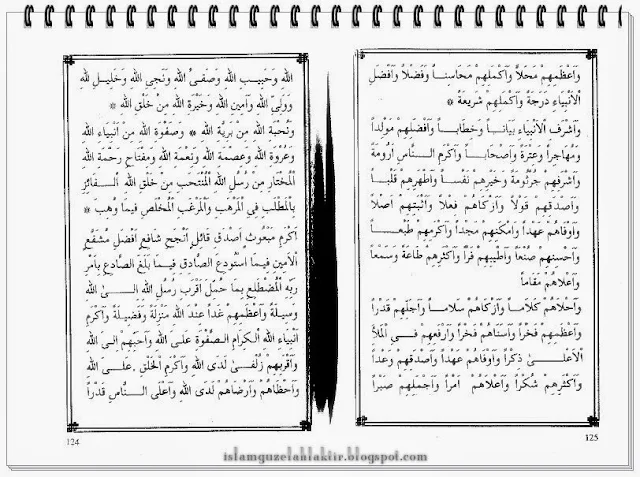 اللهِ وَحَبِيبِ اللهِ وَصَفِيِّ اللهِ وَنَجِيِّ اللهِ وَخَلِيلِ للهِ
وَوَلِيِّ اللهِ وَأَمِينِ اللهِ وَخِيَرَةِ اللهِ مِنْ خَلْقِ اللهِ *
وَنُخْبَةِ اللهِ مِنْ بَرِيَّةِ اللهِ * وَصَفْوَةِ اللهِ مِنْ أَنْبِيَاءِ اللهِ
وَعُرْوَةِ اللهِ وَعِصْمَةِ اللهِ وَنِعْمَةِ اللهِ وَمِفْتَاحِ رَحْمَةِ اللهِ
الْمُخْتَارِ مِنْ رُسُلِ اللهِ الْمُنْتَخَبِ مِنْ خَلْقِ اللهِ الْفَائِزِ
بِالْمَطْلَبِ فِي الْمَرْهَبِ وَالْمَرْغَبِ الْمُخْلَصِ فِيمَا وُهِبَ *
أَكْرَمِ مَبْعُوثٍ أَصْدَقِ قَائِلٍ أَنْجَحِ شَافِعٍ أَفْضَلِ مُشَفَّعٍ
الْأَمِينِ فِيمَا اسْتُودِعَ الصَّادِقِ فِيمَا بَلَّغَ الصَّادِعِ بِأَمْرِ
رَبِّهِ الْمُضْطَلِعِ بِمَا حُمِّلَ أَقْرَبِ رُسُلِ اللهِ إِلَى اللهِ
وَسِيلَةً وَأَعْظَمِهِمْ غَدًا عِنْدَ اللهِ مَنْزِلَةً وَفَضِيلَةً وَأَكْرَمِ
أَنْبِيَاءِ اللهِ الْكِرَامِ الصَّفْوَةِ عَلَى اللهِ وَأَحَبِّهِمْ إِلَى اللهِ
وَأَقْرَبِهِمْ زُلْفَى لَدَى اللهِ وَأَكْرَمِ الْخَلْقِ عَلَى اللهِ
وَأَحْظَاهُمْ وَأَرْضَاهُمْ لَدَى اللهِ وَأَعْلَى النَّاسِ قَدْرًا
124
وَأَعْظَمِهِمْ مَحَلًّا وَأَكْمَلِهِمْ مَحَاسِنًا وَفَضْلًا وَأَفْضَلِ
الْأَنْبِيَاءِ دَرَجَةً وَأَكْمَلِهِمْ شَرِيعَةً *
وَأَشْرَفِ الْأَنْبِيَاءِ بَيَانًا وَخِطَابًا وَأَفْضَلِهِمْ مَوْلِدًا
وَمُهَاجَرًا وَعِتْرَةً وَأَصْحَابًا وَأَكْرَمِ النَّاسِ أَرُومَةً
وَأَشْرَفِهِمْ جُرْثُومَةً وَخَيْرِهِمْ نَفْسًا وَأَطْهَرِهِمْ قَلْبًا
وَأَصْدَقِهِمْ قَوْلًا وَأَزْكَاهُمْ فِعْلًا وَأَثْبَتِهِمْ أَصْلًا
وَأَوْفَاهُمْ عَهْدًا وَأَمْكَنِهِمْ مَجْدًا وَأَكْرَمِهِمْ طَبْعًا
وَأَحْسَنِهِمْ صُنْعًا وَأَطْيَبِهِمْ فَرْعًا وَأَكْثَرِهِمْ طَاعَةً وَسَمْعًا
وَأَعْلَاهُمْ مَقَامًا
وَأَحْلَاهُمْ كَلَامًا وَأَزْكَاهُمْ سَلَامًا وَأَجَلِّهِمْ قَدْرًا
وَأَعْظَمِهِمْ فَخْرًا وَأَسْنَاهُمْ فَخْرًا وَأَرْفَعِهِمْ فِي الْمَلَإِ
الْأَعْلَى ذِكْرًا وَأَوْفَاهُمْ عَهْدًا وَأَصْدَقِهِمْ وَعْدًا
وَأَكْثَرِهِمْ شُكْرًا وَأَعْلَاهُمْ أَمْرًا وَأَجْمَلِهِمْ صَبْرًا
125
islamguzelahlaktir.blogspot.com